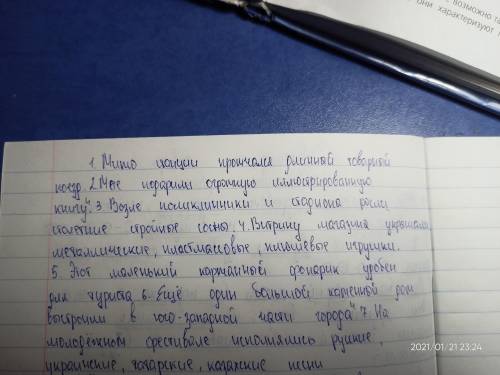 возможно
они характеризуют
1. Мимо станции промчался длинный товарный
поезд. 2. Мне подарили огромную иллюстрированную
книгу. 3. Возле поликлиники и стадиона росли
столетние стройные сосны. 4. Витрину магазина украшали
металлические, пластмассовые, плюшевые игрушки.
5. Этот маленький карманный фонарик удобен
для туриста 6. Ещё один большой каменный дом
выстроили в юго-западной части города 7. На
молодежном фестивале исполнялись русские,
украинские, татарские, казахские песни
2021/01/21 23:24